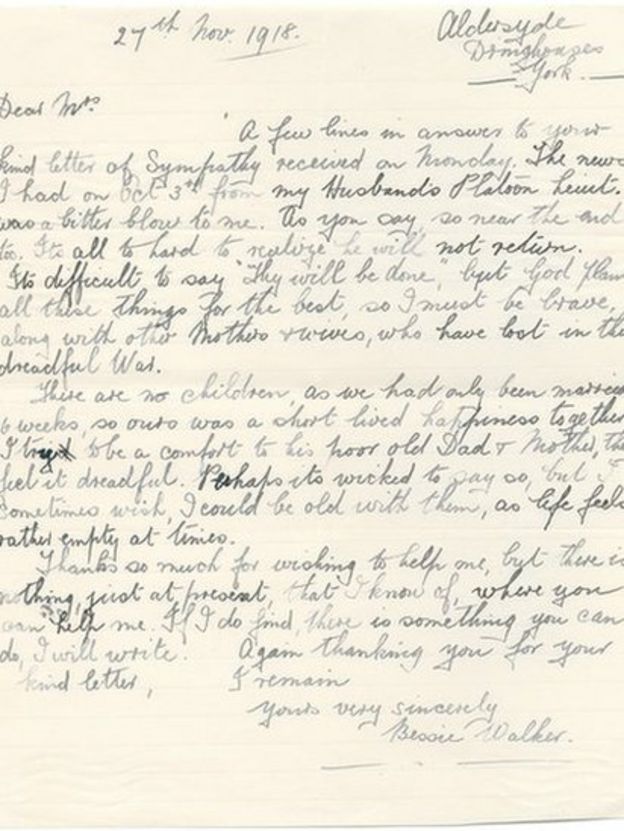 27th Nov. 1918.
Aldersyde
Dringhouses
York.
Dear Mrs
A few lines in answer to your
kind letter of Sympathy received on Monday. The news
I had on Oct 3rd from my Husbands Platoon lieut.
was a bitter blow to me. As you say, so near the end
too. Its all to hard to realize he will not return.
Its difficult to say "Thy will be done," but God plans
all these things for the best, so I must be brave,
along with other Mothers & wives, who have lost in this
dreadful War.
There are no children, as we had only been married
6 weeks, so ours was a short lived happiness together.
I try to be a comfort to his poor old Dad & Mother, they
feel it dreadful. Perhaps its wicked to say so, but I
sometimes wish, I could be old with them, as life feels
rather empty at times.
Thanks so much for wishing to help me, but there is
nothing, just at present, that I know of, where you
can help me. If I do find, there is something you can
do, I will write. Again thanking you for your
kind letter, I remain
yours very sincerely
Bessie Walker.